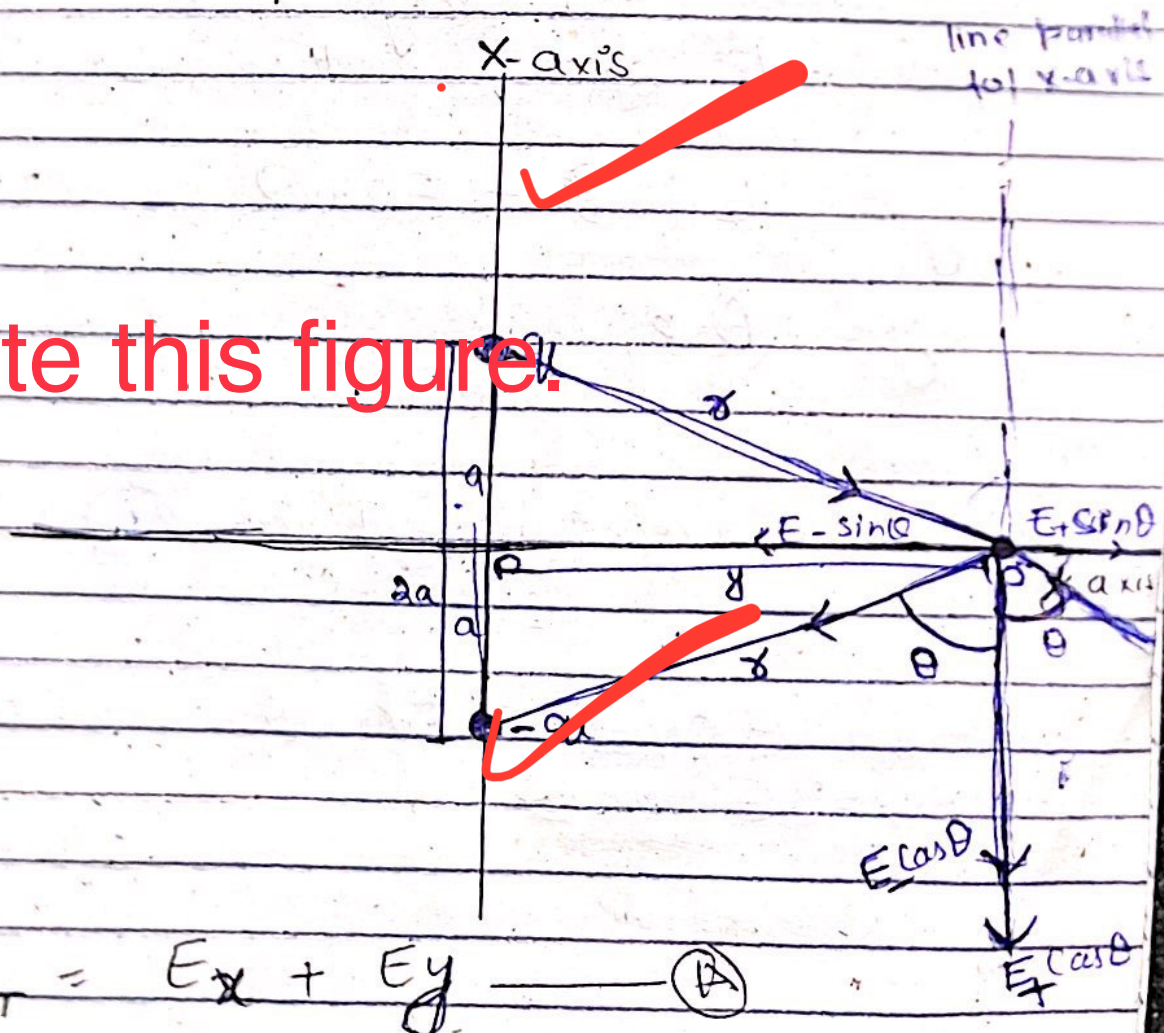 X-axis
line parallel
to x-axis
te this figure.
q
r
a
E- sinθ
E+ sinθ
P
y
axis
2a
a
r
θ
θ
-q
E- Cosθ
E+ Cosθ
= Ex + Ey — (A)